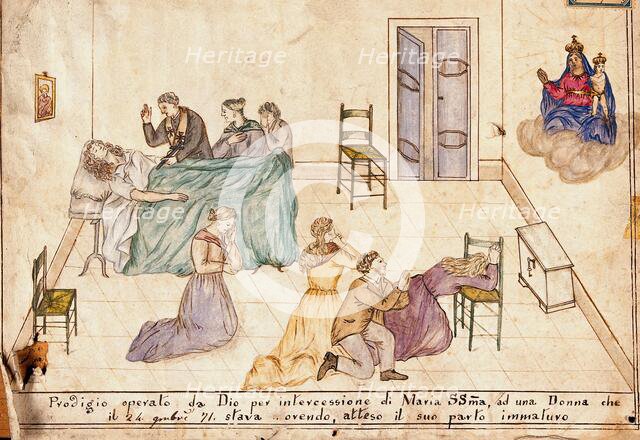 Heritage
Heritage
Heritage
Heritage
Heritage
Heritage
Prodigio operato da Dio per intercessione di Maria SSma, ad una Donna che
il 24. 71. stava ..orendo, atteso il suo parto immaturo